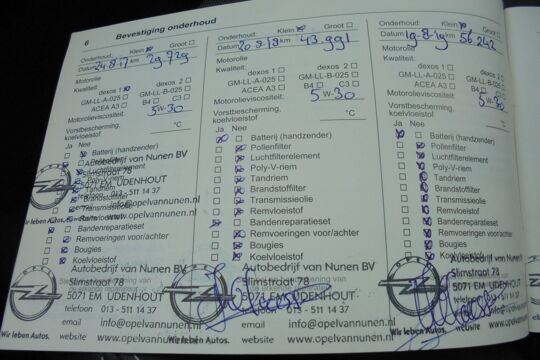 6
Bevestiging onderhoud
Onderhoud: Klein Groot
Datum 24-8-17 km 29.729
Motorolie
Kwaliteit:
dexos 1 dexos 2
GM-LL-A-025 GM-LL-B-025
ACEA A3 B4 C3
Motorolieviscositeit: 5W-30
Vorstbescherming, koelvloeistof °C
Ja Nee
Batterij (handzender)
Pollenfilter
Luchtfilterelement
Poly-V-riem
Tandriem
Brandstoffilter
Transmissieolie
Remvloeistof
Bandenreparatieset
Remvoeringen voor/achter
Bougies
Koelvloeistof
Autobedrijf van Nunen BV
Slimstraat 78
5071 EM UDENHOUT
telefoon 013 - 511 14 37
info@opelvannunen.nl
www.opelvannunen.nl
Wir leben Autos.
Autobedrijf van Nunen BV
Slimstraat 78
5071 EM UDENHOUT
telefoon 013 - 511 14 37
email info@opelvannunen.nl
website www.opelvannunen.nl
Wir leben Autos.
Onderhoud: Klein Groot
Datum 20-8-18 km 43.991
Motorolie
Kwaliteit:
dexos 1 dexos 2
GM-LL-A-025 GM-LL-B-025
ACEA A3 B4 C3
Motorolieviscositeit: 5W-30
Vorstbescherming, koelvloeistof °C
Ja Nee
Batterij (handzender)
Pollenfilter
Luchtfilterelement
Poly-V-riem
Tandriem
Brandstoffilter
Transmissieolie
Remvloeistof
Bandenreparatieset
Remvoeringen voor/achter
Bougies
Koelvloeistof
Autobedrijf van Nunen BV
Slimstraat 78
5071 EM UDENHOUT
telefoon 013 - 511 14 37
email info@opelvannunen.nl
website www.opelvannunen.nl
Wir leben Autos.
Onderhoud: Klein Groot
Datum 19-8-19 km 56.242
Motorolie
Kwaliteit:
dexos 1 dexos 2
GM-LL-A-025 GM-LL-B-025
ACEA A3 B4 C3
Motorolieviscositeit: 5W-30
Vorstbescherming, koelvloeistof °C
Ja Nee
Batterij (handzender)
Pollenfilter
Luchtfilterelement
Poly-V-riem
Tandriem
Brandstoffilter
Transmissieolie
Remvloeistof
Bandenreparatieset
Remvoeringen voor/achter
Bougies
Koelvloeistof
Autobedrijf van Nunen BV
Slimstraat 78
5071 EM UDENHOUT
telefoon 013 - 511 14 37
email info@opelvannunen.nl
website www.opelvannunen.nl
Wir leben Autos.